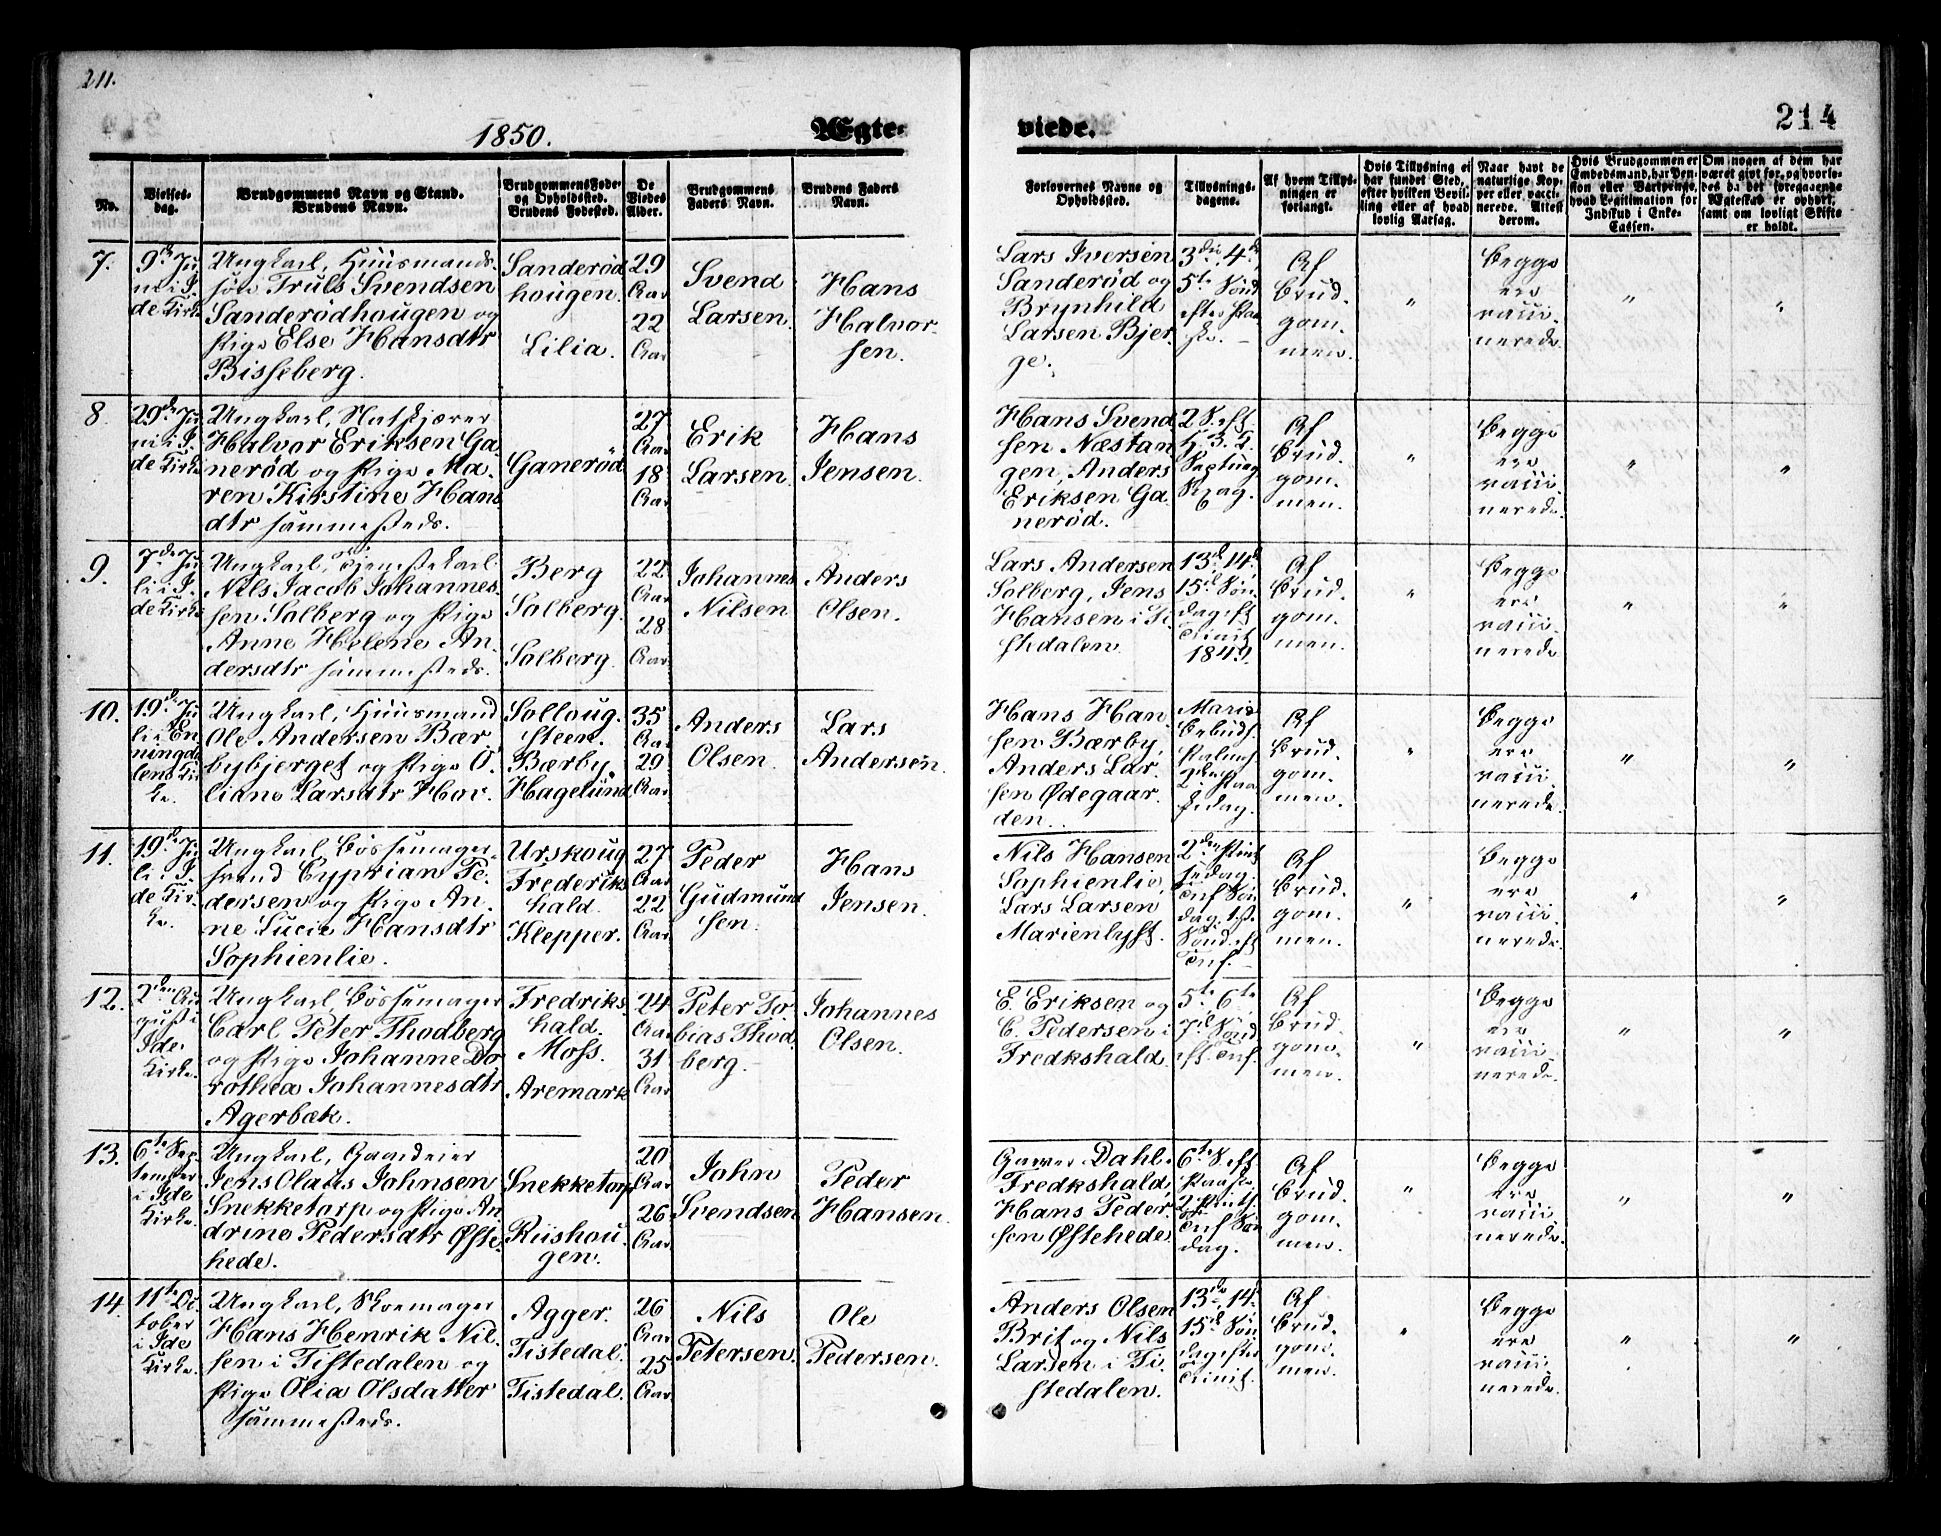 211.
214
1850.
Ægte-
viede.
No.
Vielses-
dag.
Brudgommens Navn og Stand.
Brudens Navn.
Brudgommens Føde-
og Opholdsted.
Brudens Fødested.
De
Viedes
Alder.
Brudgommens
Faders Navn.
Brudens Faders
Navn.
Forlovernes Navne og
Opholdssted.
Tillysnings-
dagene.
Af hvem Tillys-
ningen er
forlangt.
Hvis Tillysning ei
har fundet Sted,
efter hvilken Bevil-
ling eller af hvad
lovlig Aarsag.
Naar havt de
naturlige Kop-
per eller vacci-
nerede. Attest
derom.
Hvis Brudgommen er
Embedsmand, har Pen-
sion eller Vartpenge,
hvad Legitimation for
Indskud i Enke-
Cassen.
Om nogen af dem har
været gift før, og hvorle-
des da det foregaaende
Ægteskab er ophørt,
samt om lovligt Skifte
er holdt.
7.
9de Ju
ni i I-
de Kirke
Ungkarl, Huusmands-
søn Truls Svendsen
Sanderødhougen og
Pige Else Hansdtr
Bisseberg.
Sanderød
hougen.
Lilia.
29
Aar
22
Aar
Svend
Larsen.
Hans
Halvor-
sen.
Lars Iversen
Sanderød og
Brynhild
Larsen Bjer
ge.
3die, 4de,
5te Sønd
efter Paa
ske.
Af
Brud-
gom-
men.
"
Begge
ere
vacci-
nerede.
"
"
8.
29de Ju
ni i I-
de Kirke
Ungkarl,
Halvor Eriksen Ga-
nerød og Pige Ma-
ren Kirstine Hans
dtr sammesteds.
Ganerød
27
Aar
18
Aar
Erik
Larsen.
Hans
Jensen.
Hans Svend
sen Næstan
gen, Anders
Eriksen Ga-
nerød.
2 S. eft
H. 3. K.
Af
Brud-
gom-
men.
"
Begge
ere
vacci-
nerede.
"
"
9.
7de Ju
li i I-
de Kirke
Ungkarl, Tjenestekarl
Nils Jacob Johannes-
sen Solberg og Pige
Anne Helene An-
dersdtr sammesteds.
Berg
Solberg.
Solberg.
22
Aar
28
Aar
Johannes
Nilsen
Anders
Olsen.
Lars Andersen
Solberg, Jens
Hansen i Ti-
stedalen.
13d 14d
15d Søn
dag eft
Trinit
1849.
Af
Brud-
gom-
men.
"
Begge
ere
vacci-
nerede
"
"
10.
19de Ju
li i En-
ningda
lens Kir
ke.
Ungkarl, Huusmand
Ole Andersen Bær-
bybjerget og Pige O-
liane Larsdtr Hov.
Solloug-
steen.
Bærby
Hagelund
35
Aar
29
Aar
Anders
Olsen.
Lars
Andersen.
Hans Han-
sen Bærby,
Anders Lar-
sen Ødegaar-
den.
Marie
Bebud.
Palmes
2den Paa
skedag.
Af
Brud-
gom-
men.
"
Begge
ere
vacci-
nerede.
"
"
11.
19de Ju
li i I-
de Kir-
ke.
Ungkarl Bøssemager-
svend Cyprian Pe-
dersen og Pige An-
ne Lucie Hansdtr
Sophienlie.
Urskoug
Frederiks
hald.
Klepper.
27
Aar
22
Aar
Peder
Gudmund
sen.
Hans
Jensen.
Nils Hansen
Sophienlie,
Lars Larsen
Marienlyst.
2den Pint
sedag,
Trinf Søn
dag, 1ste
Sønd. eft
Trinf.
Af
Brud-
gom-
men.
"
Begge
ere
vacci-
nerede.
"
"
12.
2den Au
gust i
Ide-
Kirke.
Ungkarl Bøssemager
Carl Peter Thodberg
og Pige Johanne Do
rothea Johannesdtr
Agerbæk.
Fredriks
hald.
Moss.
Aremark
24
Aar
31
Aar
Peter To-
bias Thod
berg.
Johannes
Olsen.
E. Eriksen og
C. Pedersen i
Fredkshald.
5te 6te
7de Sønd
eft. Trinf.
Af
Brud-
gom-
men.
"
Begge
ere
vacci-
nerede.
"
"
13.
6te Sep
tember
i Ide
Kirke.
Ungkarl, Gaardeier
Jens Olaus Johnsen
Snekketorp og Pige An
drine Pedersdtr Øste-
hede.
Snekketorp
Riishou-
gen.
20
Aar
26
Aar
John
Svendsen
Peder
Hansen.
Garver Dahl-
Fredkshald,
Hans Peder-
sen Østehede.
6te S. eft
Paaske
2den Pints
Trinf Søn
dag.
Af
Brud-
gom-
men.
"
Begge
ere
vacci-
nerede.
"
"
14.
11te Oc
tober
i Ide
Kirke.
Ungkarl, Skomager
Hans Henrik Nil-
sen i Tistedalen og
Pige Olia Olsdatter
sammesteds.
Agger.
Tistedal.
Tistedal.
26
Aar
25
Aar
Nils
Petersen.
Ole
Pedersen.
Anders Olsen
Brit og Nils
Larsen i Ti-
stedalen.
13de, 14d.
15d Søn
dag efter
Trinit.
Af
Brud-
gom-
men.
"
Begge
ere
vacci-
nerede.
"
"